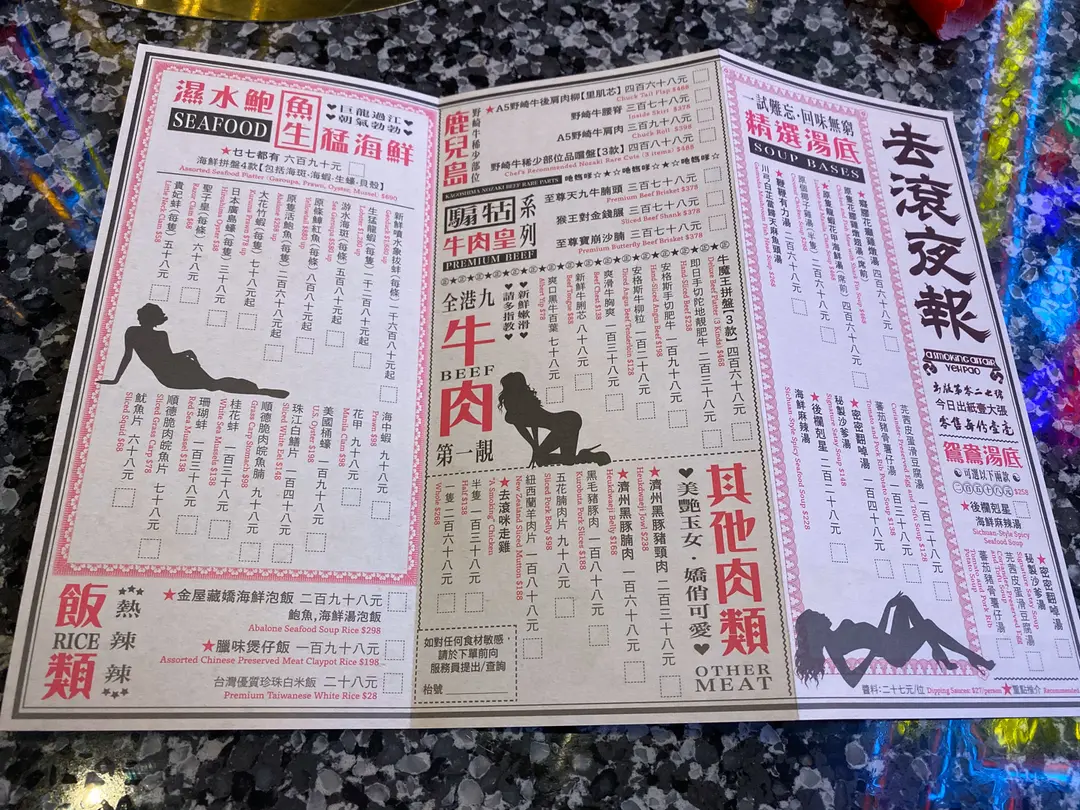 濕水鮑魚生猛海鮮
SEAFOOD
♥巨龍過江♥
♥朝氣勃勃♥
★乜七都有 六百九十元
海鮮拼盤4款【包括海斑·海蝦·生蠔·貝殼】
Assorted Seafood Platter (Garoupa, Prawn, Oyster, Mussel) $690
新鮮噴水象拔蚌(每條) 二千六百八十八元起
生猛龍蝦(每隻) 一千二百八十八元起
Lobster $1,288 up
游水海斑(每條) 五百八十八元起
Sea Garoupa $588 up
原條鱘魠魚(每條) 八百八十八元起
原隻活鮑魚(每隻) 二百八十八元起
Abalone $288 up
大花竹蝦(每隻) 七十八元
日本廣島蠔(每隻) 三十八元
Hiroshima Oyster $38
聖子皇(每隻) 六十八元
Razor Clam $68
貴妃蚌(每隻) 五十八元
海中蝦 九十八元
Prawn $98
花甲 九十八元
Manila Clam $98
美國桶蠔 一百九十八元
U.S. Oyster $198
珠江白鱔片 一百四十八元
Sliced White Eel $148
順德脆肉皖魚腩 九十八元
Grass Carp Stomach $98
桂花蚌 一百三十八元
White Sea Mussels $138
珊瑚蚌 一百三十八元
Red Sea Mussel $138
順德脆肉皖魚片 七十八元
Sliced Grass Carp $78
魷魚片 六十八元
Sliced Squid $68
飯類
RICE
熱辣辣
★金屋藏嬌海鮮泡飯 二百九十八元
鮑魚,海鮮湯泡飯
Abalone Seafood Soup Rice $298
★臘味煲仔飯 一百九十八元
Assorted Chinese Preserved Meat Claypot Rice $198
台灣優質珍珠白米飯 二十八元
Premium Taiwanese White Rice $28
鹿兒島
野崎牛稀少部位
KAGOSHIMA NOZAKI BEEF RARE PARTS
★A5野崎牛後肩肉柳【里肌芯】 四百六十八元
Chuck Tail Flap $468
野崎牛腰脊 三百七十八元
Inside Skirt $378
A5野崎牛肩肉 三百九十八元
Chuck Roll $398
野崎牛稀少部位品嚐盤【3款】 四百八十八元
Chef's Recommended Nozaki Rare Cuts (3 items) $488
騸牯系列
牛肉皇
PREMIUM BEEF
至尊天九牛腩頭 三百七十八元
Beef Brisket $378
猴王對金錢𦟌 三百七十八元
Sliced Beef Shank $378
至尊寶崩沙腩 三百七十八元
Premium Butterfly Beef Brisket $378
全港九牛肉第一靚
BEEF
♥新鮮嫩滑♥
♥請多指教♥
牛魔王拼盤【3款】 四百六十八元
Deluxe Beef Platter (3 Kinds) $468
即日手切陀地靚肥牛 二百三十八元
Hand-Sliced Beef $238
安格斯手切肥牛 一百九十八元
Hand-Sliced Angus Beef $198
安格斯牛柳粒 一百二十八元
Diced Angus Beef Tenderloin $128
爽滑牛胸爽 一百三十八元
Beef Chest $138
新鮮牛脷芯 八十八元
Beef Tongue $88
爽口黑牛百葉 七十八元
其他肉類
OTHER MEAT
♥美艷玉女·嬌俏可愛♥
★濟州黑豚豬頸肉 二百三十八元
Heukdwaeji Jowl $238
★濟州黑豚腩肉 一百六十八元
Heukdwaeji Belly $168
黑毛豬豚肉 一百八十八元
Kurobuta Pork Sliced $188
五花腩肉片 九十八元
Sliced Pork Belly $98
紐西蘭羊肉片 一百八十八元
New Zealand Sliced Mutton $188
★去滾咪走雞
"A Smoking" Chicken
半隻 一百三十八元
Half $138
一隻 二百六十八元
Whole $268
如對任何食材敏感
請於下單前向
服務員提出/查詢
枱號
一試難忘·回味無窮
精選湯底
SOUP BASES
密密翻啅湯
秘製沙爹湯
Signature Satay Soup $148
★後欄剋星 二百二十八元
海鮮麻辣湯
Sichuan-Style Spicy Seafood Soup $228
芫茜皮蛋滑豆腐湯 一百二十八元
蕃茄豬骨薯仔湯 一百三十八元
Tomato and Pork Rib Potato Soup $138
去滾夜報
A SMOKING AFFAIR
YEH PAO
今日出紙壹大張
鴛鴦湯底
可選以下兩款
二百五十八元 $258
★後欄剋星
海鮮麻辣湯
Sichuan-Style Spicy
Seafood Soup
★密密翻啅湯
秘製沙爹湯
Signature Satay Soup
芫茜皮蛋滑豆腐湯
蕃茄豬骨薯仔湯
醬料:二十七元/位 Dipping Sauces: $27/person ★重點推介 Recommended